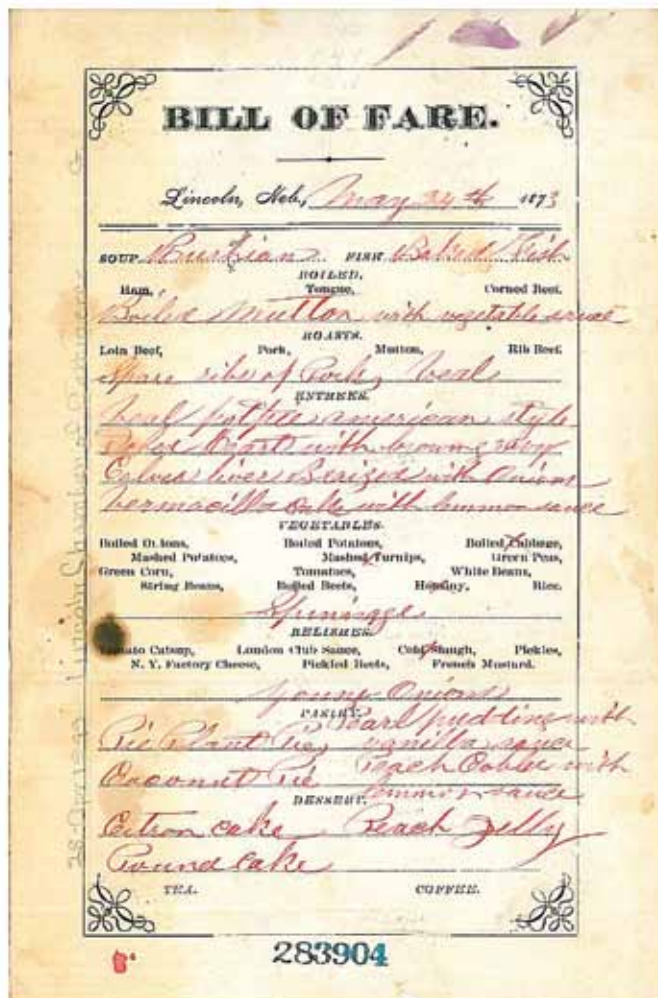 BILL OF FARE.
Lincoln, Neb., May 24th 1873
SOUP Russian FISH Baked Fish
BOILED.
Ham, Tongue, Corned Beef.
Boiled Mutton with vegetable sauce
ROASTS.
Loin Beef, Pork, Mutton, Rib Beef.
Spare ribs of Pork, Veal
ENTREES.
Veal potpie american style
heart with brown gravy
Calves liver with Onions
Vermacilla Cake with common sauce
VEGETABLES.
Boiled Onions, Boiled Potatoes, Boiled Cabbage,
Mashed Potatoes, Mashed Turnips, Green Peas,
Green Corn, Tomatoes, White Beans,
String Beans, Boiled Beets, Hominy, Rice.
Spinage
RELISHES.
Tomato Catsup, London Club Sauce, Cold Slaugh, Pickles,
N. Y. Factory Cheese, Pickled Beets, French Mustard.
Young Onions
PASTRY.
Pearl pudding with
Pie Plant Pie, vanilla sauce
Coconut Pie Peach Cobler with
common sauce
DESSERT.
Citron cake Peach Jelly
Pound cake
TEA. COFFEE.
283904